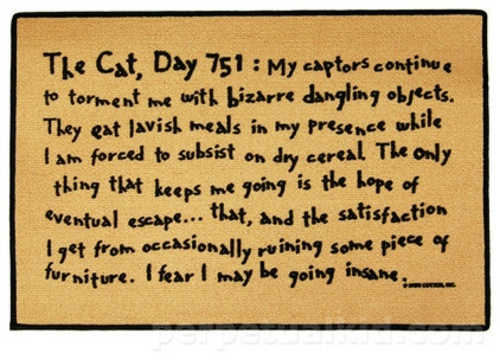 The Cat, Day 751 : My captors continue
to torment me with bizarre dangling objects.
They eat lavish meals in my presence while
I am forced to subsist on dry cereal. The only
thing that keeps me going is the hope of
eventual escape... that, and the satisfaction
I get from occasionally ruining some piece of
furniture. I fear I may be going insane.
perpetualkid.com